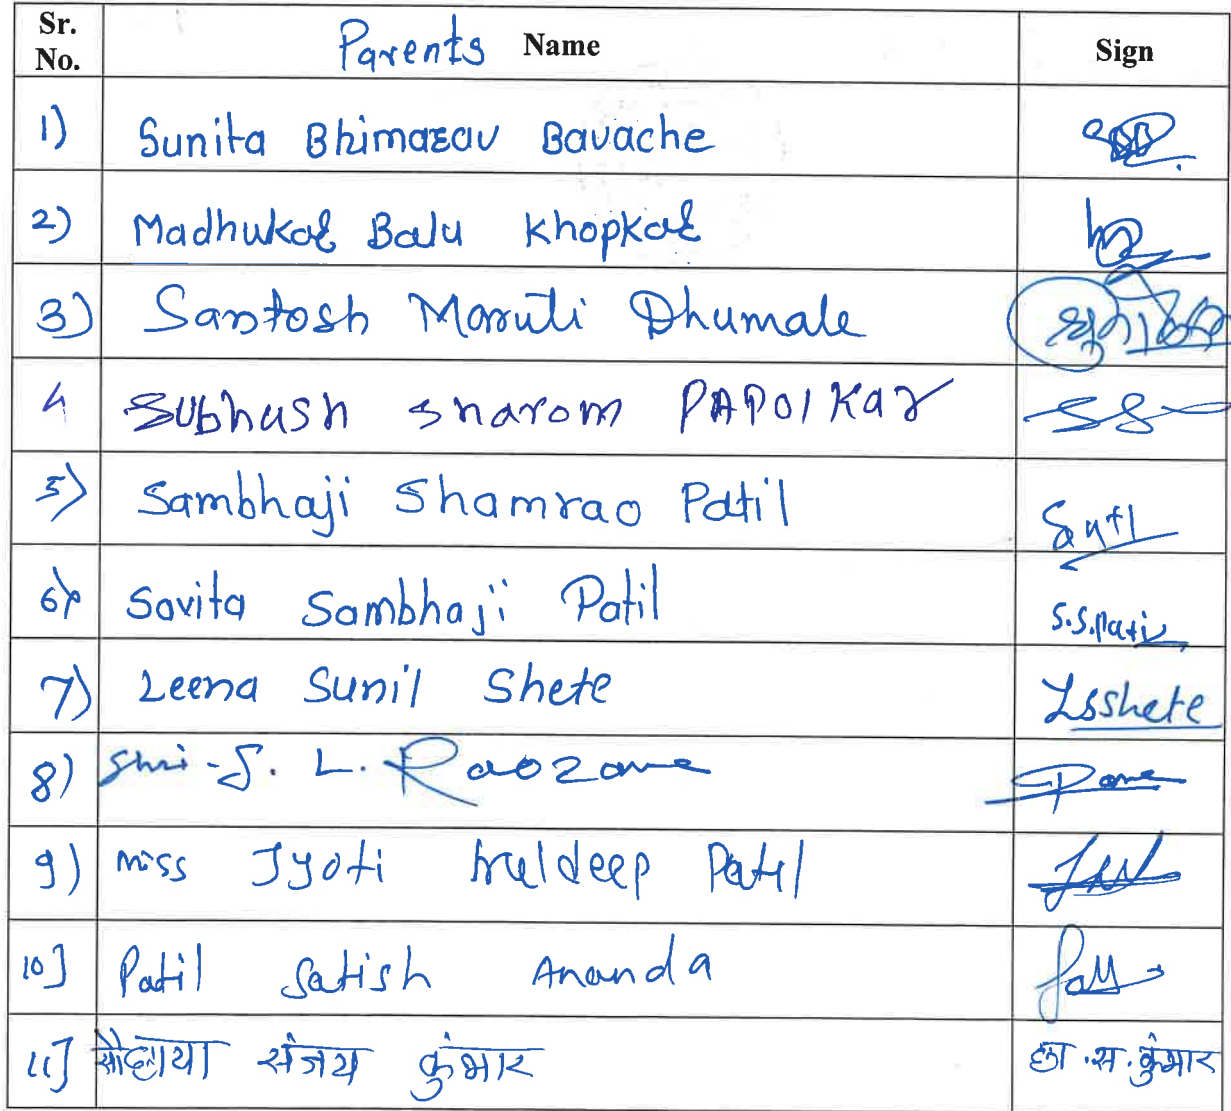 Sr. No. Parents Name Sign
1) Sunita Bhimarav Bavache
2) Madhukar Balu Khopkar
3) Santosh Maruti Dhumale
4 Subhash sharom PAPOlKar SS
5) Sambhaji Shamrao Patil
6) Savita Sambhaji Patil S.S.Patil
7) Leena Sunil Shete LSshete
8) Shri - S. L. Raozame
9) miss Jyoti kuldeep Patil
10] Patil Satish Ananda
11] संजय कुंभार छा.स.कुंभार